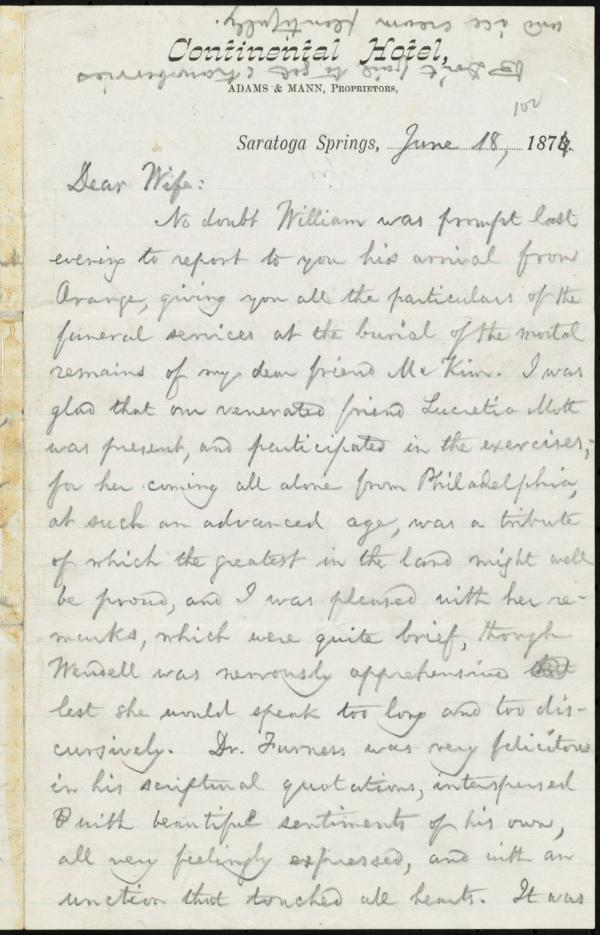 ☞ Don't fail to get strawberries
and ice cream plentifully.
Continental Hotel,
ADAMS & MANN, PROPRIETORS,
102
Saratoga Springs, June 18, 1874.
Dear Wife:
No doubt William was prompt last
evening to report to you his arrival from
Orange, giving you all the particulars of the
funeral services at the burial of the mortal
remains of my dear friend McKim. I was
glad that our venerated friend Lucretia Mott
was present, and participated in the exercises;
for her coming all alone from Philadelphia,
at such an advanced age, was a tribute
of which the greatest in the land might well
be proud, and I was pleased with her re-
marks, which were quite brief, though
Wendell was nervously apprehensive
lest she would speak too long and too dis-
cursively. Dr. Furness was very felicitous
in his scriptural quotations, interspersed
with beautiful sentiments of his own,
all very feelingly expressed, and with an
unction that touched all hearts. It was